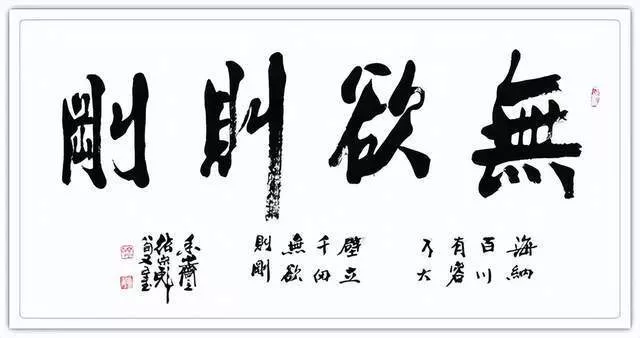 無欲則剛
海納
百川
有容
乃大
壁立
千仞
無欲
則剛